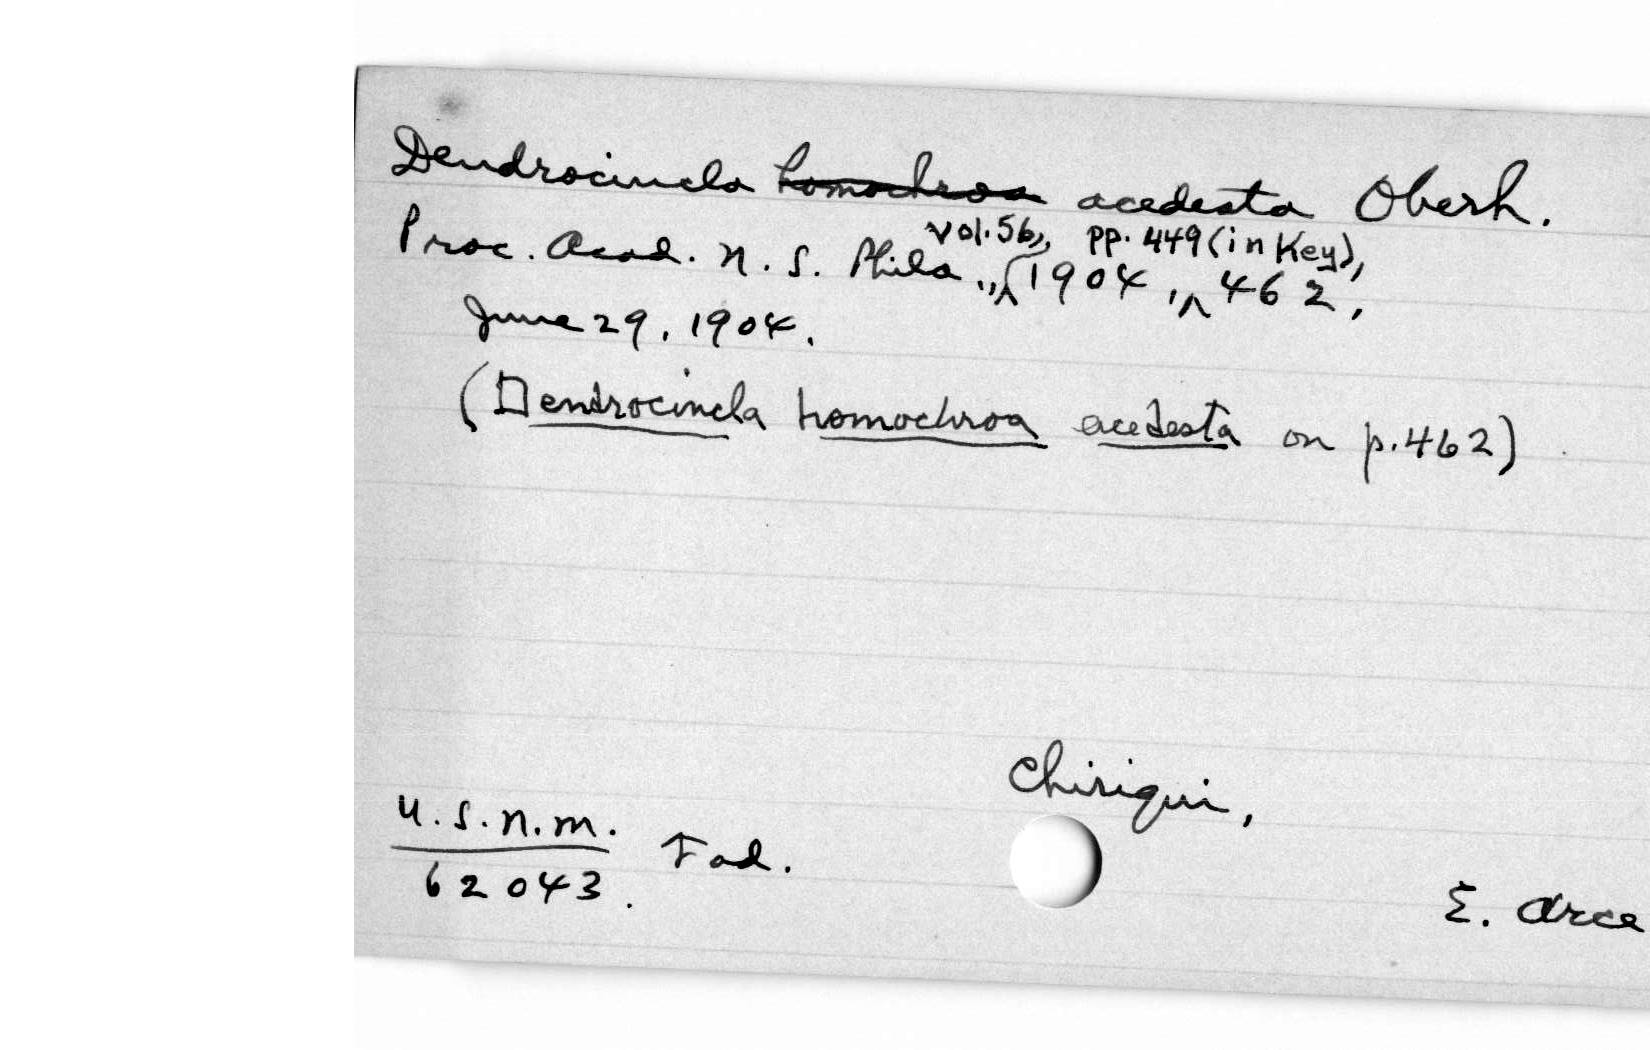 Dendrocincla homochroa acedesta Oberh.
Proc. Acad. N. S. Phila., vol. 56, 1904, pp. 449 (in Key), 462,
June 29, 1904.
(Dendrocincla homochroa acedesta on p. 462)
Chiriqui,
U.S.N.M. ad.
62043.
E. Arce